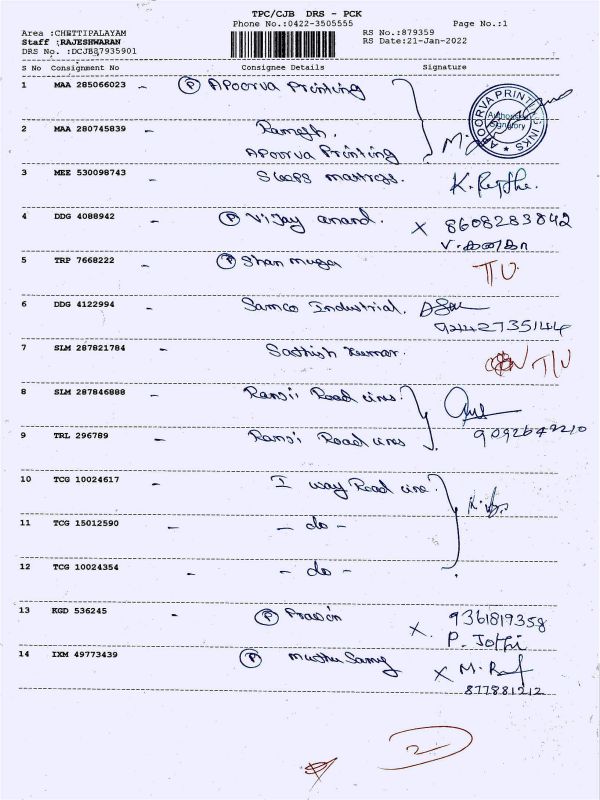 TPC/CJB DRS - PCK
Phone No.:0422-3505555 Page No.:1
Area :CHETTIPALAYAM RS No.:879359
Staff :RAJESHWARAN RS Date:21-Jan-2022
DRS No. :DCJB87935901
S No Consignment No Consignee Details Signature
1 MAA 285066023 - (P) Apoorva Printing
APOORVA PRINTING INKS
Authorised
Signatory
2 MAA 280745839 - Ramesh.
Apoorva Printing
3 MEE 530098743 - Sleeps mattress.
4 DDG 4088942 - (P) Vijay anand. X 8608283842
5 TRP 7668222 - (P) Shan muga
6 DDG 4122994 - Samco Industrial.
9442735144
7 SLM 287821784 - Sathish kumar.
8 SLM 287846888 - Ranji Road lines.
9 TRL 296789 - Ranji Road lines
9092642210
10 TCG 10024617 - I way Road line.
11 TCG 15012590 - - do -
12 TCG 10024354 - - do -
13 KGD 536245 - (P) 9361819358
X. P. Jothi
14 IXM 49773439 (P) Muthu Samy X M.
877881212
2